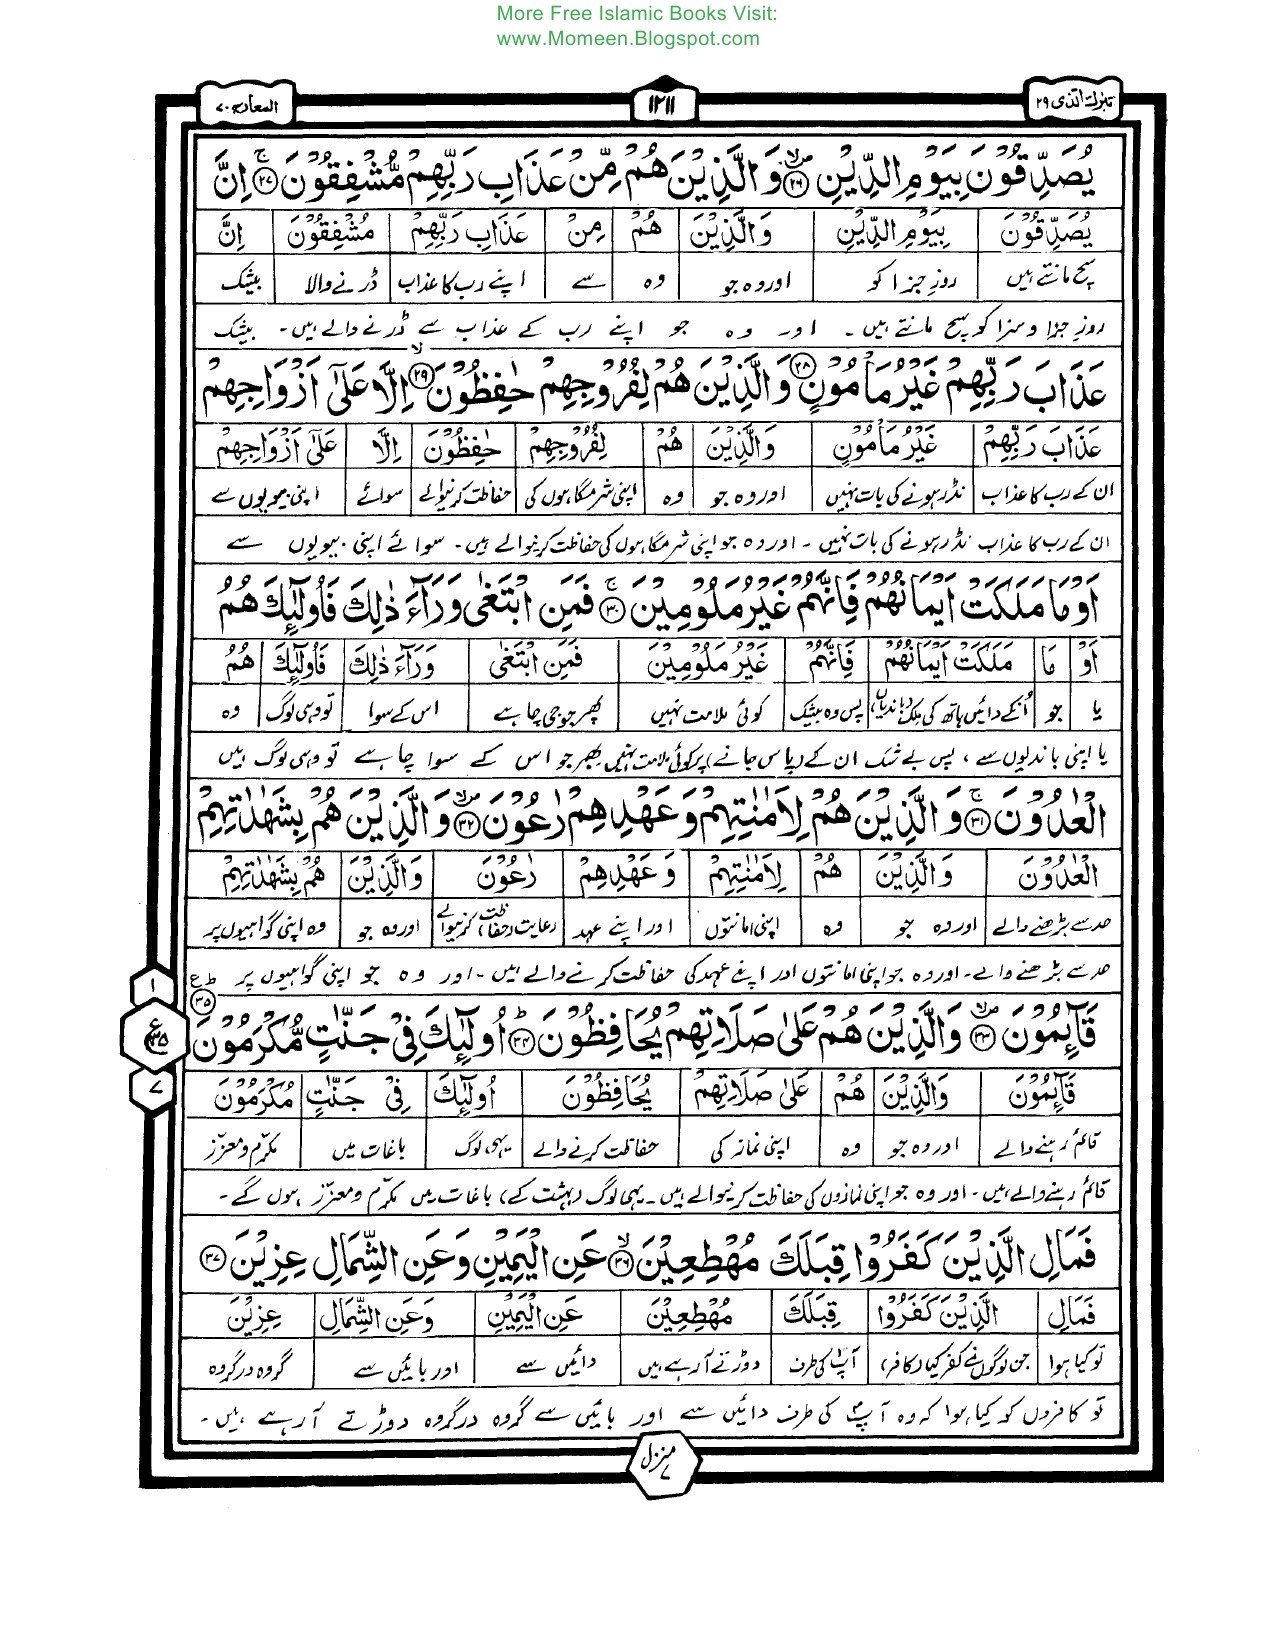 More Free Islamic Books Visit:
www.Momeen.Blogspot.com
تبٰرك الذی ۲۹
۱۲۱۱
المعارج ۷۰
يُصَدِّقُوْنَ بِيَوْمِ الدِّيْنِ ۲۶ وَ الَّذِيْنَ هُمْ مِّنْ عَذَابِ رَبِّهِمْ مُّشْفِقُوْنَ ۲۷ اِنَّ
يُصَدِّقُوْنَ بِيَوْمِ الدِّيْنِ وَالَّذِيْنَ هُمْ مِنْ عَذَابِ رَبِّهِمْ مُشْفِقُوْنَ اِنَّ
سچ مانتے ہیں روزِ جزا کو اور وہ جو وہ سے اپنے رب کا عذاب ڈرنے والا بیشک
روزِ جزا و سزا کو سچ مانتے ہیں۔ اور وہ جو اپنے رب کے عذاب سے ڈرنے والے ہیں۔ بیشک
عَذَابَ رَبِّهِمْ غَيْرُ مَاْمُوْنٍ ۲۸ وَالَّذِيْنَ هُمْ لِفُرُوْجِهِمْ حٰفِظُوْنَ ۲۹ اِلَّا عَلٰٓى اَزْوَاجِهِمْ
عَذَابَ رَبِّهِمْ غَيْرُ مَاْمُوْنٍ وَالَّذِيْنَ هُمْ لِفُرُوْجِهِمْ حٰفِظُوْنَ اِلَّا عَلٰٓى اَزْوَاجِهِمْ
ان کے رب کا عذاب نڈر ہونے کی بات نہیں اور وہ جو وہ اپنی شرمگاہوں کی حفاظت کرنیوالے سوائے اپنی بیویوں سے
ان کے رب کا عذاب نڈر ہونے کی بات نہیں ۔ اور وہ جو اپنی شرمگاہوں کی حفاظت کرنیوالے ہیں۔ سوائے اپنی بیویوں سے
اَوْ مَا مَلَكَتْ اَيْمَانُهُمْ فَاِنَّهُمْ غَيْرُ مَلُوْمِيْنَ ۳۰ فَمَنِ ابْتَغٰى وَرَآءَ ذٰلِكَ فَاُولٰٓئِكَ هُمُ
اَوْ مَا مَلَكَتْ اَيْمَانُهُمْ فَاِنَّهُمْ غَيْرُ مَلُوْمِيْنَ فَمَنِ ابْتَغٰى وَرَآءَ ذٰلِكَ فَاُولٰٓئِكَ هُمُ
یا جو اُنکے دائیں ہاتھ کی ملک (باندیاں) پس وہ بیشک کوئی ملامت نہیں پھر جو جی چاہے اس کے سوا تو وہی لوگ وہ
یا اپنی باندیوں سے، پس بے شک ان کے (پاس جانے) پر کوئی ملامت نہیں پھر جو اس کے سوا چاہے تو وہی لوگ ہیں
الْعٰدُوْنَ ۳۱ وَ الَّذِيْنَ هُمْ لِاَمٰنٰتِهِمْ وَ عَهْدِهِمْ رٰعُوْنَ ۳۲ وَالَّذِيْنَ هُمْ بِشَهٰدٰتِهِمْ
الْعٰدُوْنَ وَالَّذِيْنَ هُمْ لِاَمٰنٰتِهِمْ وَ عَهْدِهِمْ رٰعُوْنَ وَالَّذِيْنَ هُمْ بِشَهٰدٰتِهِمْ
حد سے بڑھنے والے اور وہ جو وہ اپنی امانتوں اور اپنے عہد رعایت (حفاظت) کرنیوالے اور وہ جو وہ اپنی گواہیوں پر
حد سے بڑھنے والے۔ اور وہ جو اپنی امانتوں اور اپنے عہد کی حفاظت کرنے والے ہیں۔ اور وہ جو اپنی گواہیوں پر
قَآئِمُوْنَ ۳۳ وَالَّذِيْنَ هُمْ عَلٰى صَلَاتِهِمْ يُحَافِظُوْنَ ۳۴ اُولٰٓئِكَ فِيْ جَنّٰتٍ مُّكْرَمُوْنَ ۳۵
قَآئِمُوْنَ وَالَّذِيْنَ هُمْ عَلٰى صَلَاتِهِمْ يُحَافِظُوْنَ اُولٰٓئِكَ فِيْ جَنّٰتٍ مُكْرَمُوْنَ
قائم رہنے والے اور وہ جو وہ اپنی نماز کی حفاظت کرنے والے یہی لوگ باغات میں مکرّم و معزّز
قائم رہنے والے ہیں۔ اور وہ جو اپنی نمازوں کی حفاظت کرنیوالے ہیں۔ یہی لوگ (بہشت کے) باغات میں مکرّم و معزّز ہوں گے۔
۱
ع
۷
فَمَالِ الَّذِيْنَ كَفَرُوْا قِبَلَكَ مُهْطِعِيْنَ ۳۶ عَنِ الْيَمِيْنِ وَعَنِ الشِّمَالِ عِزِيْنَ ۳۷
فَمَالِ الَّذِيْنَ كَفَرُوْا قِبَلَكَ مُهْطِعِيْنَ عَنِ الْيَمِيْنِ وَعَنِ الشِّمَالِ عِزِيْنَ
تو کیا ہوا جن لوگوں نے کفر کیا (کافر) آپؐ کی طرف دوڑتے آرہے ہیں دائیں سے اور بائیں سے گروہ در گروہ
تو کافروں کو کیا ہوا کہ وہ آپؐ کی طرف دائیں سے اور بائیں سے گروہ در گروہ دوڑتے آرہے ہیں۔
منزل ۷